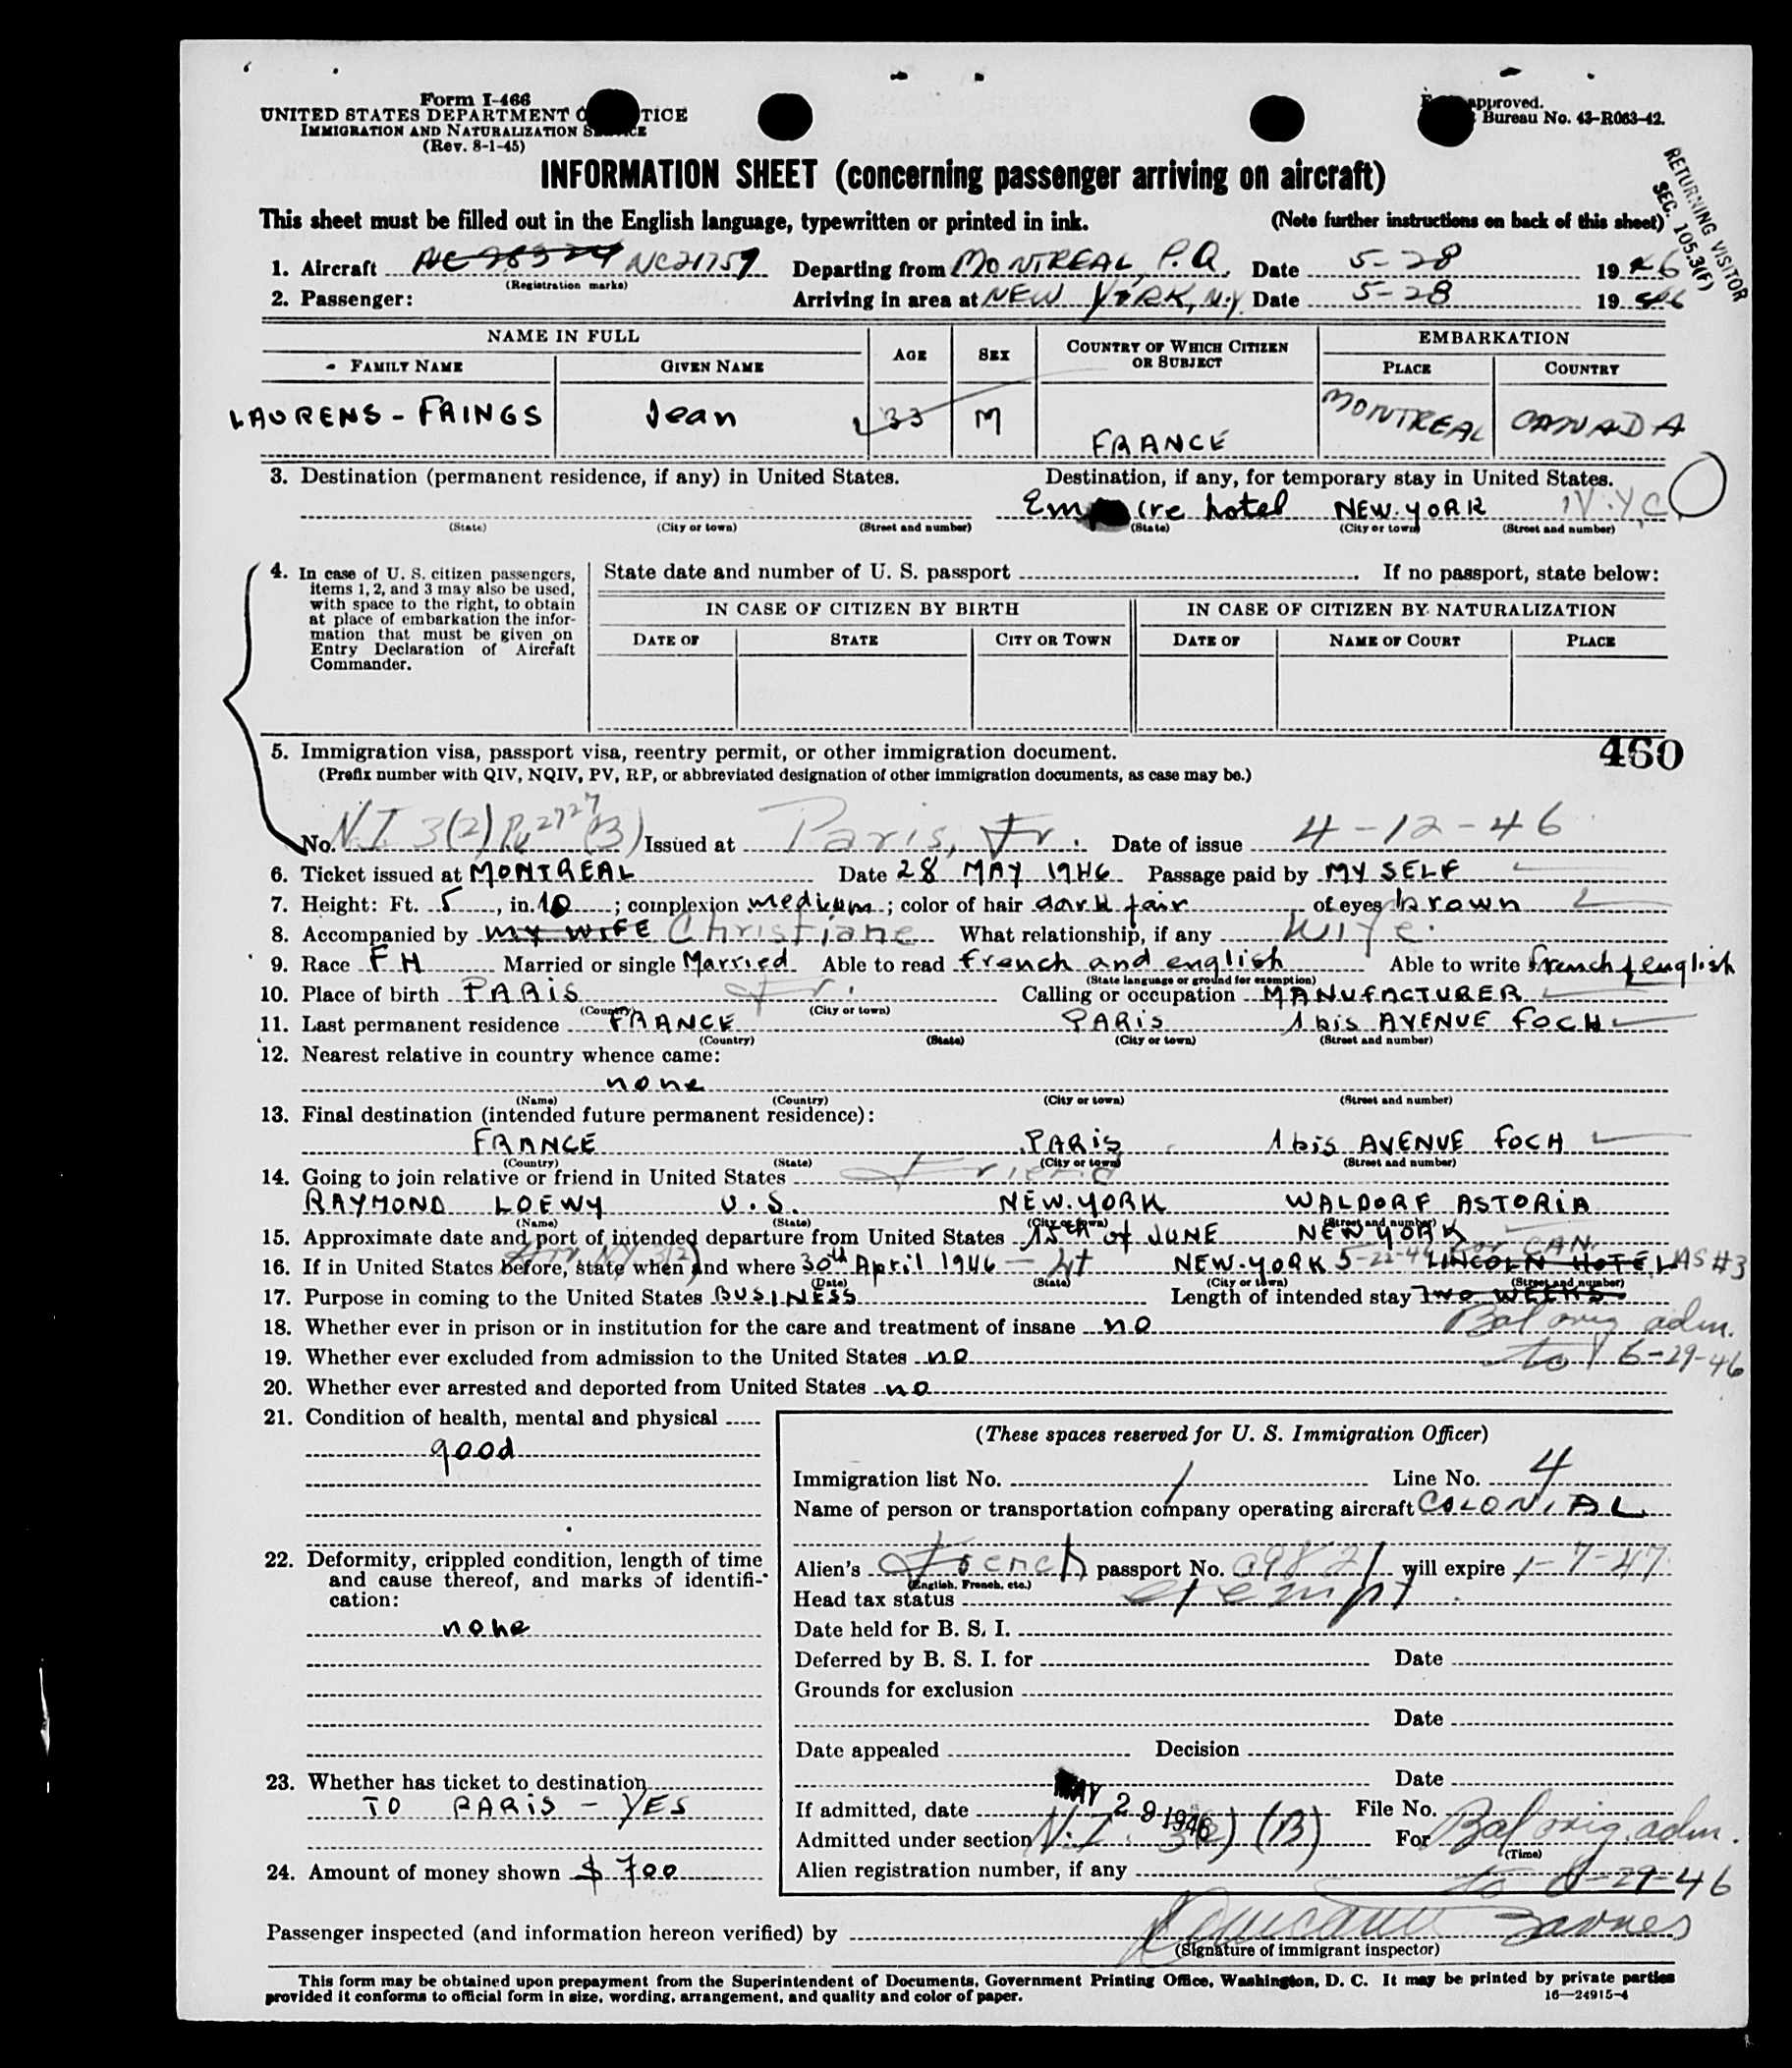 Form I-466
UNITED STATES DEPARTMENT O TICE
IMMIGRATION AND NATURALIZATION SERVICE
(Rev. 8-1-45)
approved.
Bureau No. 43-R063-42.
INFORMATION SHEET (concerning passenger arriving on aircraft)
RETURNING VISITOR
SEC. 105.3(F)
This sheet must be filled out in the English language, typewritten or printed in ink. (Note further instructions on back of this sheet)
1. Aircraft NC21757 Departing from MONTREAL, P.Q. Date 5-28 1946
(Registration marks)
2. Passenger: Arriving in area at NEW YORK, N.Y. Date 5-28 1946
NAME IN FULL AGE SEX COUNTRY OF WHICH CITIZEN OR SUBJECT EMBARKATION
FAMILY NAME GIVEN NAME PLACE COUNTRY
LAURENS-FRINGS Jean 33 M FRANCE MONTREAL CANADA
3. Destination (permanent residence, if any) in United States. Destination, if any, for temporary stay in United States.
Empire hotel NEW.YORK N.Y.C.
(State) (City or town) (Street and number) (State) (City or town) (Street and number)
4. In case of U. S. citizen passengers, items 1, 2, and 3 may also be used, with space to the right, to obtain at place of embarkation the information that must be given on Entry Declaration of Aircraft Commander.
State date and number of U. S. passport . If no passport, state below:
IN CASE OF CITIZEN BY BIRTH IN CASE OF CITIZEN BY NATURALIZATION
DATE OF STATE CITY OR TOWN DATE OF NAME OF COURT PLACE
460
5. Immigration visa, passport visa, reentry permit, or other immigration document.
(Prefix number with QIV, NQIV, PV, RP, or abbreviated designation of other immigration documents, as case may be.)
No. N.I 3(2) 2727 (B) Issued at Paris, Fr. Date of issue 4-12-46
6. Ticket issued at MONTREAL Date 28 MAY 1946 Passage paid by MY SELF
7. Height: Ft. 5, in. 10; complexion medium; color of hair dark fair of eyes brown
8. Accompanied by MY WIFE Christiane What relationship, if any Wife.
9. Race FH Married or single Married Able to read french and english Able to write french & english
(State language or ground for exemption)
10. Place of birth PARIS Fr. Calling or occupation MANUFACTURER
(Country) (City or town)
11. Last permanent residence FRANCE PARIS 1 bis AVENUE FOCH
(Country) (State) (City or town) (Street and number)
12. Nearest relative in country whence came:
none
(Name) (Country) (City or town) (Street and number)
13. Final destination (intended future permanent residence):
FRANCE PARIS 1 bis AVENUE FOCH
(Country) (State) (City or town) (Street and number)
14. Going to join relative or friend in United States Friend
RAYMOND LOEWY U.S. NEW.YORK WALDORF ASTORIA
(Name) (State) (City or town) (Street and number)
15. Approximate date and port of intended departure from United States 15th of JUNE NEW YORK
16. If in United States before, state when and where 30th April 1946 NEW.YORK 5-22-46 for CAN. LINCOLN HOTEL AS #3
(Date) (State) (City or town) (Street and number)
17. Purpose in coming to the United States BUSINESS Length of intended stay TWO WEEKS
18. Whether ever in prison or in institution for the care and treatment of insane no Bal orig adm.
19. Whether ever excluded from admission to the United States no to 6-29-46
20. Whether ever arrested and deported from United States no
21. Condition of health, mental and physical
good
22. Deformity, crippled condition, length of time and cause thereof, and marks of identification:
none
23. Whether has ticket to destination
TO PARIS - YES
24. Amount of money shown $ 700
(These spaces reserved for U. S. Immigration Officer)
Immigration list No. 1 Line No. 4
Name of person or transportation company operating aircraft COLONIAL
Alien's French passport No. 09821 will expire 1-7-47
(English, French, etc.)
Head tax status exempt
Date held for B. S. I.
Deferred by B. S. I. for Date
Grounds for exclusion
Date
Date appealed Decision
Date
If admitted, date MAY 29 1946 File No.
Admitted under section N.I. 3(2) (B) For Bal orig. adm.
(Time)
Alien registration number, if any to 6-29-46
Passenger inspected (and information hereon verified) by
(Signature of immigrant inspector)
This form may be obtained upon prepayment from the Superintendent of Documents, Government Printing Office, Washington, D. C. It may be printed by private parties
provided it conforms to official form in size, wording, arrangement, and quality and color of paper.
16—24915-4